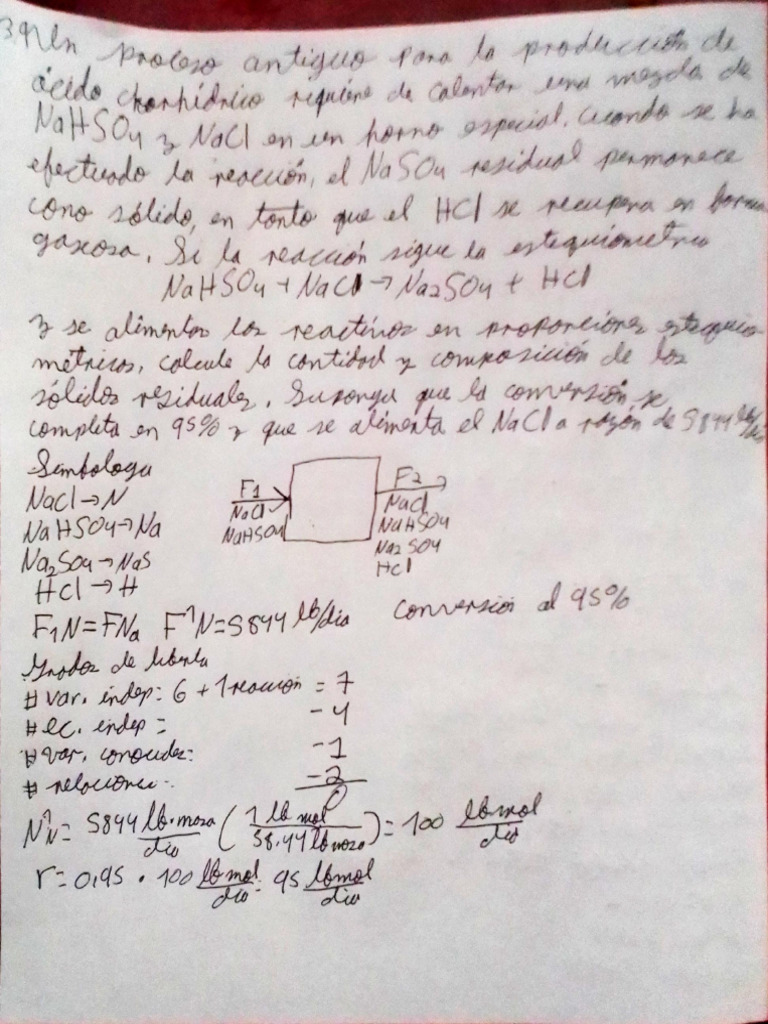 3.9 Un proceso antiguo para la producción de
ácido clorhídrico requiere de calentar una mezcla de
NaHSO4 y NaCl en un horno especial. Cuando se ha
efectuado la reacción, el NaSO4 residual permanece
como sólido, en tanto que el HCl se recupera en forma
gaseosa. Si la reacción sigue la estequiometria
NaHSO4 + NaCl → Na2SO4 + HCl
y se alimentan los reactivos en proporciones estequio
metricas, calcule la cantidad y composición de los
sólidos residuales. Suponga que la conversión se
completa en 95% y que se alimenta el NaCl a razón de 5844 lb/dia
Simbologia
NaCl → N
NaHSO4 → Na
Na2SO4 → NaS
HCl → H
F1
NaCl
NaHSO4
F2
NaCl
NaHSO4
Na2SO4
HCl
F1N = FNa F1N = 5844 lb/dia conversión al 95%
Grados de liberta
# var. indep: 6 + 1 reacción = 7
# ec. indep = - 4
# var. conocidas: - 1
# relaciones: - 2
0
N1N = 5844 lb·masa/dia (1 lb mol/58.44 lb masa) = 100 lbmol/dia
r = 0.95 · 100 lbmol/dia = 95 lbmol/dia